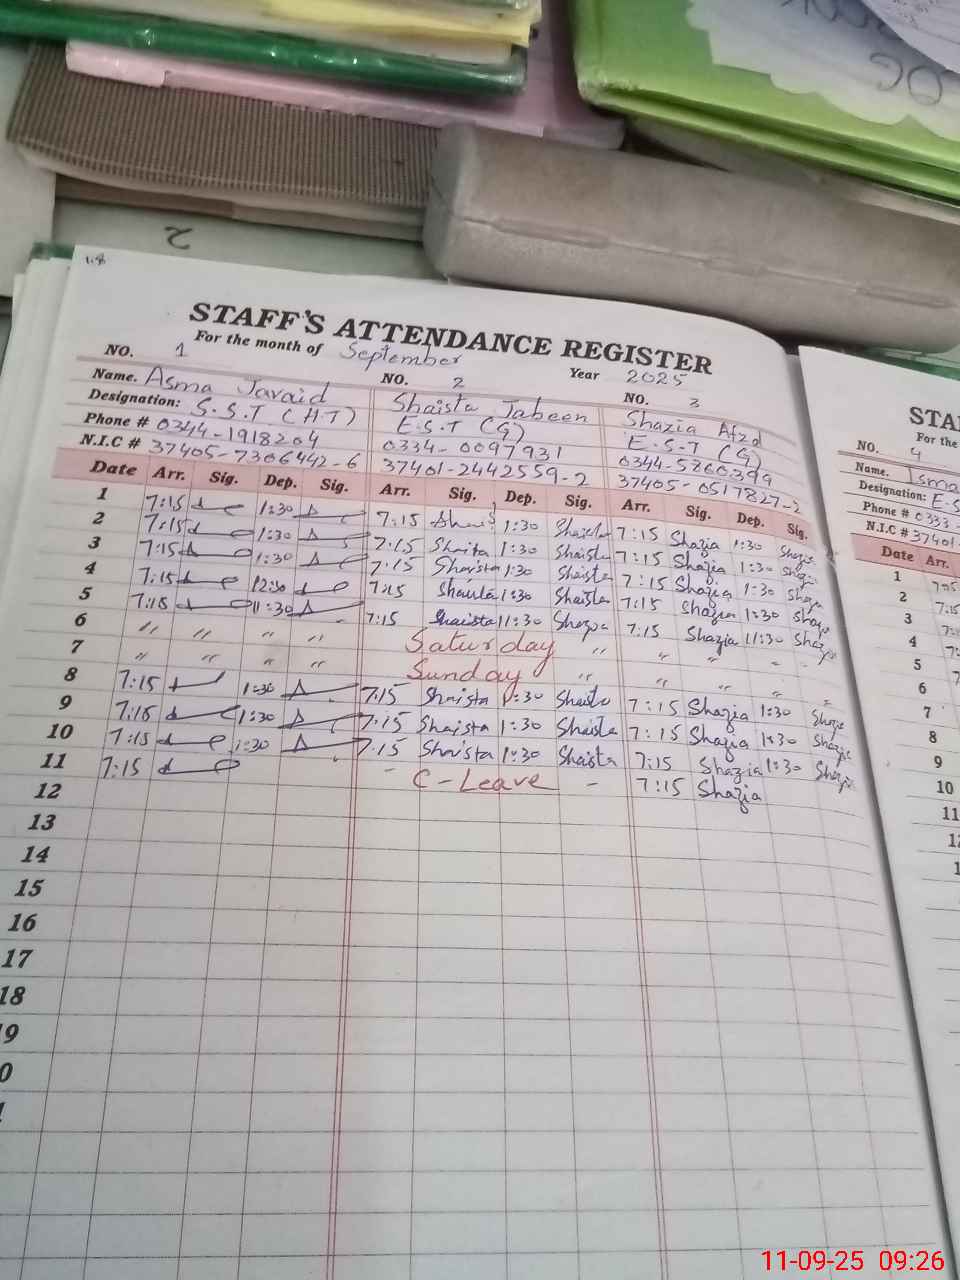 OG
2
18
STAFF'S ATTENDANCE REGISTER
For the month of September Year 2025
NO. 1 NO. 2 NO. 3
Name. Asma Javaid Shaista Jabeen Shazia Afzal
Designation: S.S.T (H.T) E.S.T (G) E.S.T (G)
Phone # 0344-1918204 0334-0097931 0344-5860399
N.I.C # 37405-7306442-6 37401-2442559-2 37405-0517827-2
Date Arr. Sig. Dep. Sig. Arr. Sig. Dep. Sig. Arr. Sig. Dep. Sig.
1 7:15 1:30 7:15 1:30 Shaista 7:15 Shazia 1:30 Shazia
2 7:15 1:30 7:15 Shaista 1:30 Shaista 7:15 Shazia 1:30 Shazia
3 7:15 1:30 7:15 Shaista 1:30 Shaista 7:15 Shazia 1:30 Shazia
4 7:15 12:30 7:15 Shaista 1:30 Shaista 7:15 Shazia 1:30 Shazia
5 7:15 11:30 7:15 Shaista 11:30 7:15 Shazia 11:30 Shazia
6 " " " " Saturday " " " " "
7 " " " " Sunday " " " " "
8 7:15 1:30 7:15 Shaista 1:30 Shaista 7:15 Shazia 1:30 Shazia
9 7:15 1:30 7:15 Shaista 1:30 Shaista 7:15 Shazia 1:30 Shazia
10 7:15 1:30 7:15 Shaista 1:30 Shaista 7:15 Shazia 1:30 Shazia
11 7:15 - C-Leave - 7:15 Shazia
12
13
14
15
16
17
18
9
0
STA
For the
NO. 4
Name. Isma
Designation: E-S
Phone # 0333
N.I.C # 37401-
Date Arr.
1 7:15
2 7:15
3
4
5
6
7
8
9
10
11
11-09-25 09:26